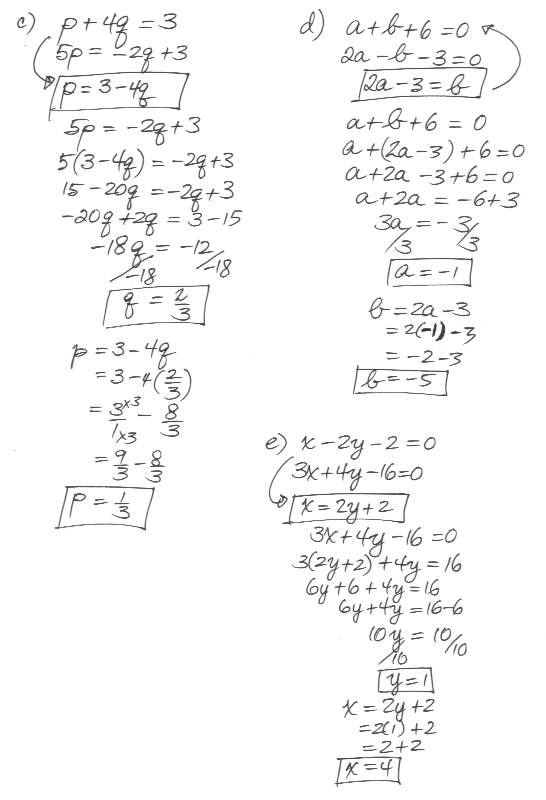 c) p + 4q = 3
5p = -2q + 3
p = 3 - 4q
5p = -2q + 3
5(3 - 4q) = -2q + 3
15 - 20q = -2q + 3
-20q + 2q = 3 - 15
-18q/-18 = -12/-18
q = 2/3
p = 3 - 4q
= 3 - 4(2/3)
= 3×3/1×3 - 8/3
= 9/3 - 8/3
p = 1/3
d) a + b + 6 = 0
2a - b - 3 = 0
2a - 3 = b
a + b + 6 = 0
a + (2a - 3) + 6 = 0
a + 2a - 3 + 6 = 0
a + 2a = -6 + 3
3a/3 = -3/3
a = -1
b = 2a - 3
= 2(-1) - 3
= -2 - 3
b = -5
e) x - 2y - 2 = 0
3x + 4y - 16 = 0
x = 2y + 2
3x + 4y - 16 = 0
3(2y + 2) + 4y = 16
6y + 6 + 4y = 16
6y + 4y = 16 - 6
10y/10 = 10/10
y = 1
x = 2y + 2
= 2(1) + 2
= 2 + 2
x = 4